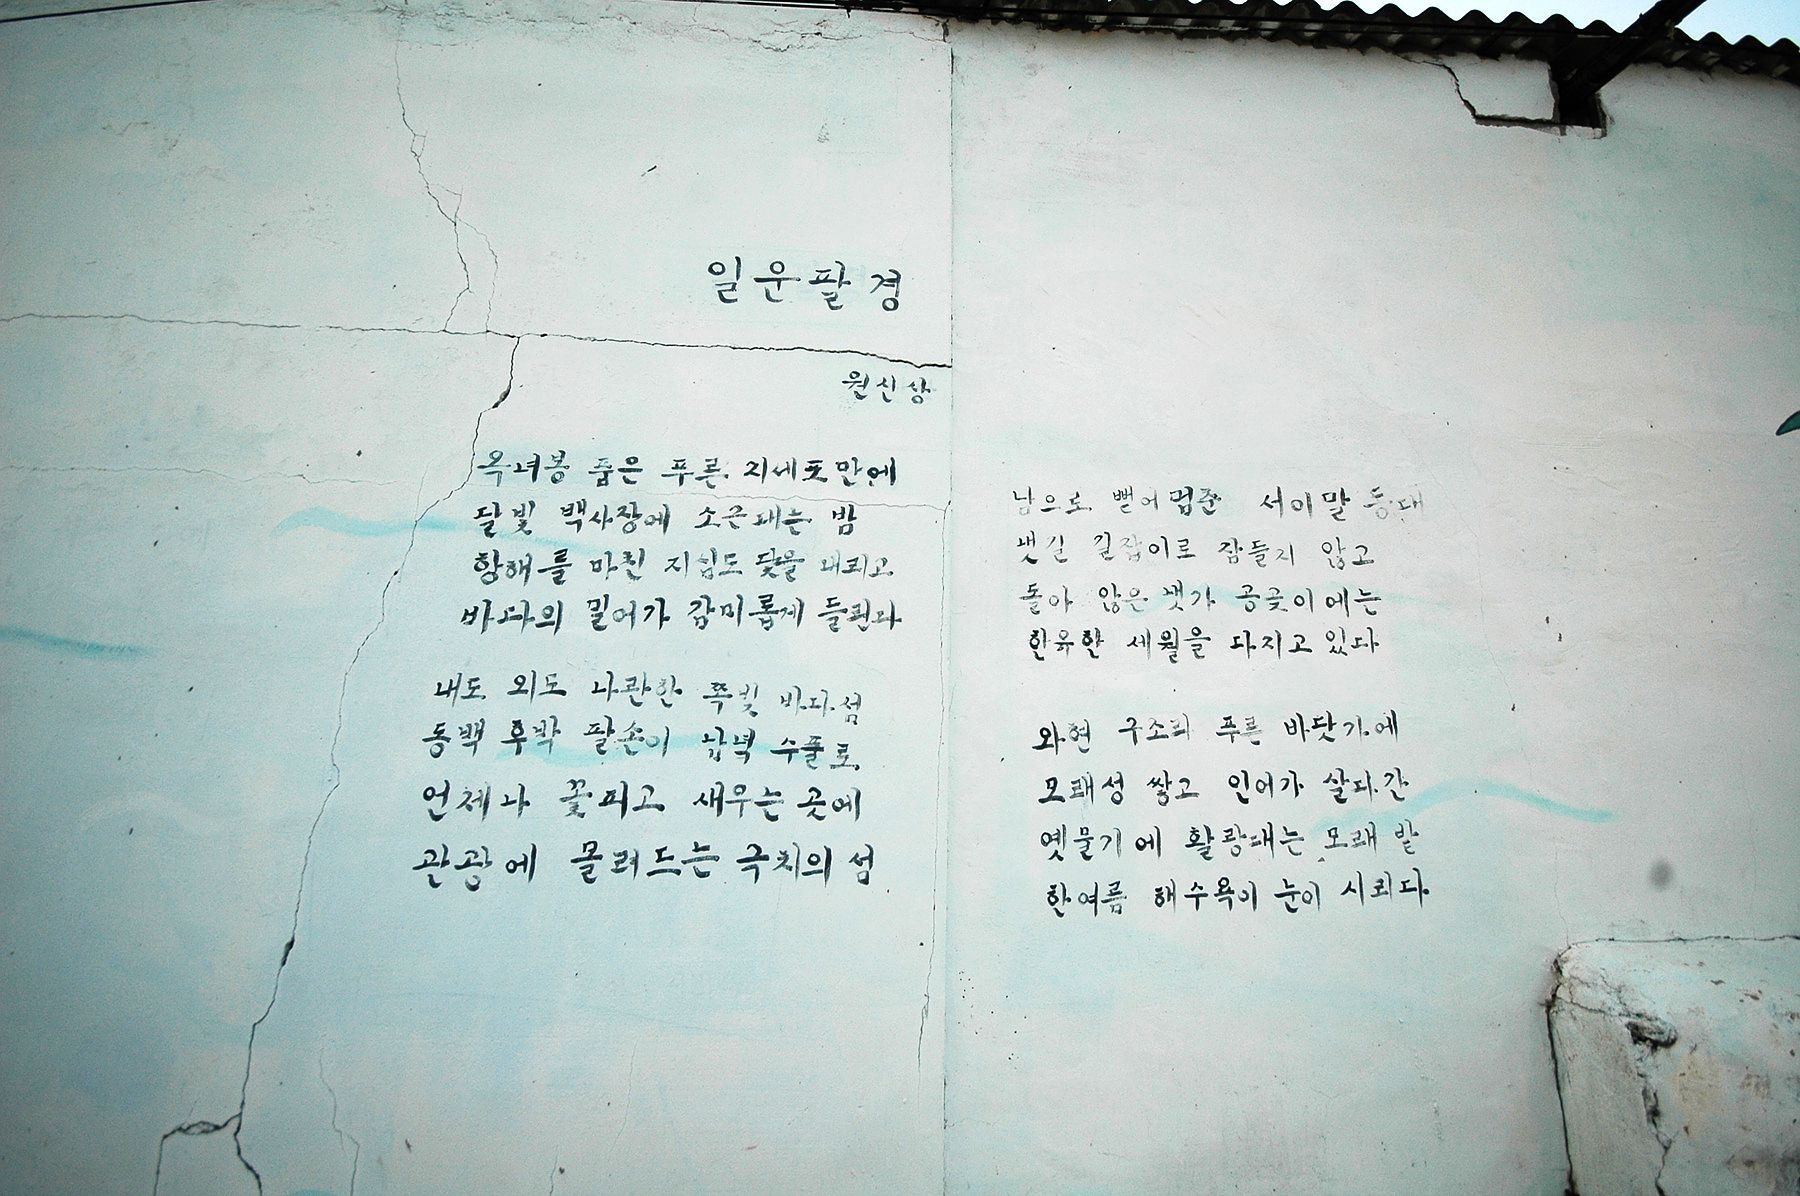 일운팔경
원신상
옥녀봉 품은 푸른 지세포만에
달빛 백사장에 소근대는 밤
항해를 마친 지심도 닻을 내리고
바다의 밀어가 감미롭게 들린다
내도 외도 나란한 쪽빛 바다섬
동백 후박 팔손이 남녘 수풀로
언제나 꽃피고 새우는 곳에
관광에 몰려드는 극치의 섬
남으로 뻗어 멈춘 서이말 등대
뱃길 길잡이로 잠들지 않고
돌아 앉은 뱃가 공곶이에는
한유한 세월을 다지고 있다
와현 구조라 푸른 바닷가에
모래성 쌓고 인어가 살다간
옛물가에 활랑대는 모래 밭
한여름 해수욕이 눈이 시리다